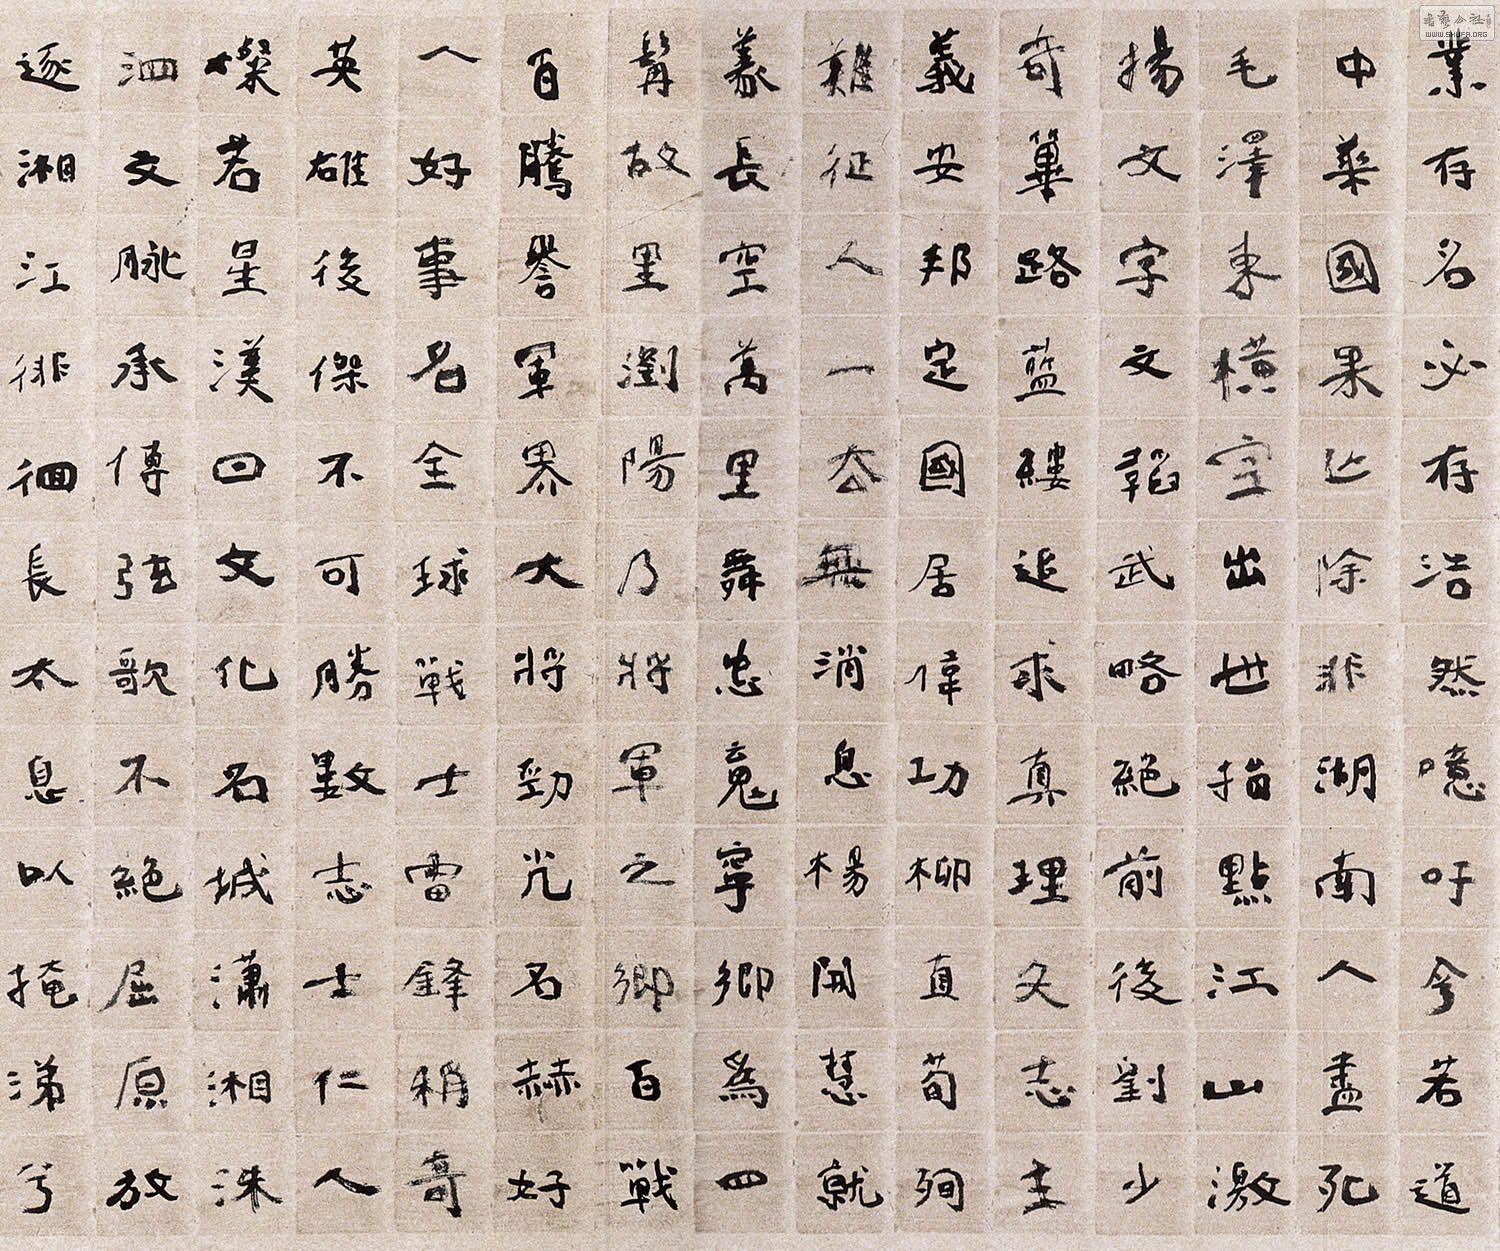 業存名必存浩然噫吁今若道
中華國果亡除非湖南人盡死
毛澤東橫空出世指點江山激
揚文字文韜武略絕前後劉少
奇篳路藍縷追求真理文志圭
義安邦定國居偉功柳直荀殉
難征人一去無消息楊開慧就
義長空萬里舞忠魂寧鄉為四
髯故里瀏陽乃將軍之鄉百戰
百騰譽軍界大將勁光名赫好
人好事名全球戰士雷鋒稱奇
英雄後傑不可勝數志士仁人
燦若星漢曰文化名城瀟湘洙
泗文脈承傳弦歌不絕屈原放
逐湘江徘徊長太息以掩涕兮
書藝公社
WWW.SHUFA.ORG